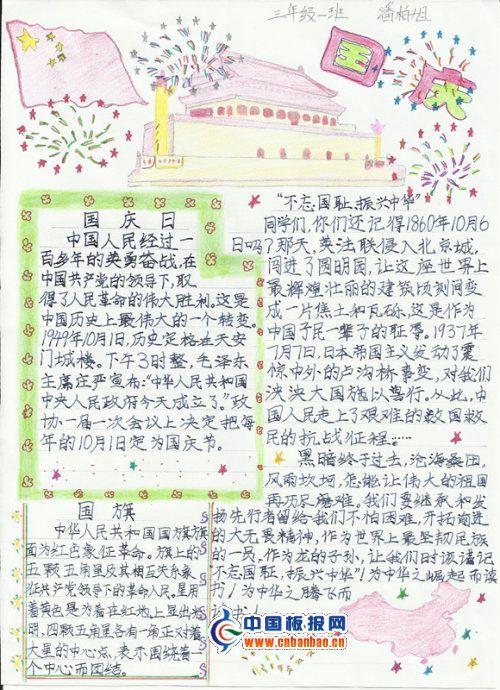 三年级一班 潘柏旭
国庆
国庆日
中国人民经过一
百多年的英勇奋战,在
中国共产党的领导下,取
得了人民革命的伟大胜利,这是
中国历史上最伟大的一个转变。
1949年10月1日,历史定格在天安
门城楼。下午3时整,毛泽东
主席庄严宣布:“中华人民共和国
中央人民政府今天成立了。”政
协一届一次会议上决定把每
年的10月1日定为国庆节。
国旗
中华人民共和国国旗旗
面为红色象征革命。旗上的
五颗五角星及其相互关系象
征共产党领导下的革命人民,星用
着黄色是为着在红地上显出光
明,四颗五角星各有一角正对着
大星的中心点,表示围绕着一
个中心而团结。
“不忘国耻,振兴中华”
同学们,你们还记得1860年10月6
日吗?那天,英法联侵入北京城,
闯进了圆明园,让这座世界上
最辉煌壮丽的建筑顷刻间变
成一片焦土和瓦砾,这是作为
中国子民一辈子的耻辱。1937年
7月7日,日本帝国主义发动了震
惊中外的卢沟桥事变,对我们
泱泱大国施以兽行。从此,中
国人民走上了艰难的救国救
民的抗战征程……
黑暗终于过去,沧海桑田,
风雨坎坷,怎能让伟大的祖国
再历尽磨难。我们要继承和发
扬先行者留给我们不怕困难,开拓前进
的大无畏精神,作为世界上最坚韧民族
的一员,作为龙的子孙,让我们时刻谨记
“不忘国耻,振兴中华”!为中华之崛起而读
书!为中华之腾飞而
中国板报网
www.cnbanbao.cn